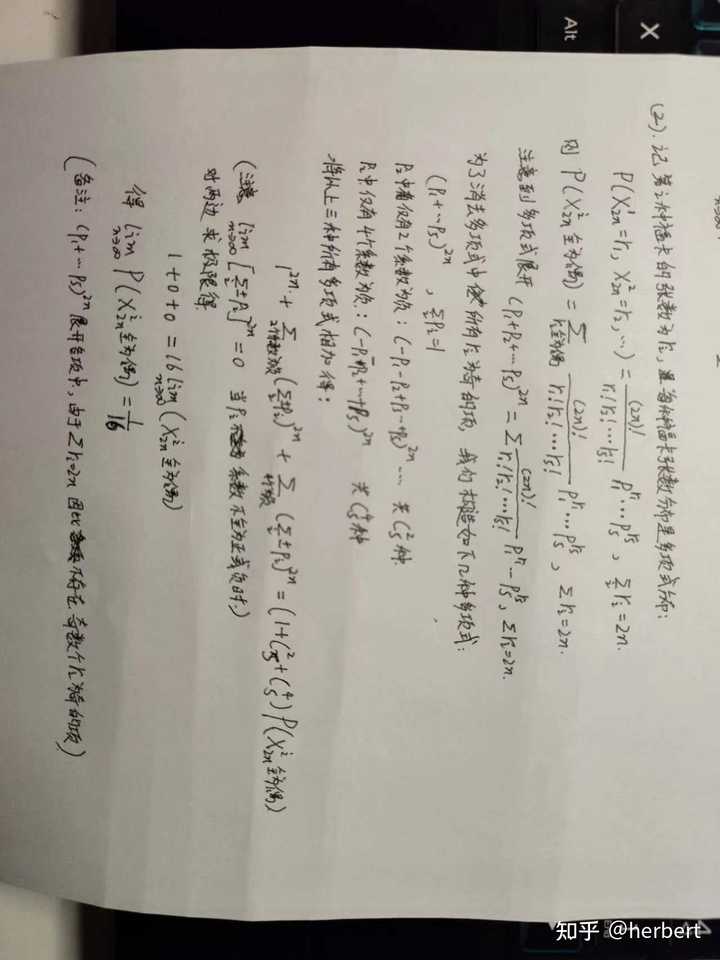 (2). 记第i种福卡的张数为rᵢ, 且每种福卡张数分布是多项式分布:
P(X¹₂ₙ=r₁, X²₂ₙ=r₂, …) = (2n)!/(r₁!r₂!…r₅!) p₁^r₁…p₅^r₅, Σrᵢ=2n.
则 P(Xⁱ₂ₙ全为偶) = Σ_{rᵢ全为偶} (2n)!/(r₁!r₂!…r₅!) p₁^r₁…p₅^r₅, Σrᵢ=2n.
注意到多项式展开 (P₁+P₂+…P₅)²ⁿ = Σ (2n)!/(r₁!r₂!…r₅!) p₁^r₁…p₅^r₅, Σrᵢ=2n.
为了消去多项式中 所有rᵢ为奇的项, 我们构造如下几种多项式:
(P₁+…P₅)²ⁿ, ΣPᵢ=1
Pᵢ中 仅有2个系数为负: (-P₁-P₂+P₃…+P₅)²ⁿ … 共C₅²种
Pᵢ中仅有4个系数为负: (-P₁ +…+P₅)²ⁿ 共C₅⁴种
将以上三种所有多项式相加得:
1²ⁿ + Σ_{2个系数为负}(Σ±Pᵢ)²ⁿ + Σ_{4个负}(Σ±Pᵢ)²ⁿ = (1+C₅²+C₅⁴)P(Xⁱ₂ₙ全为偶)
(注意 lim_{n→∞}[Σ±Pᵢ]²ⁿ=0 当Pᵢ 系数不全为正或负时.)
对两边求极限得:
1+0+0 = 16 lim_{n→∞}(Xⁱ₂ₙ全为偶)
得 lim_{n→∞} P(Xⁱ₂ₙ全为偶) = 1/16
(备注: (P₁+…P₅)²ⁿ展开各项中, 由于Σrᵢ=2n 因此 不存在奇数个rᵢ为奇的项)
X
Alt
知乎 @herbert